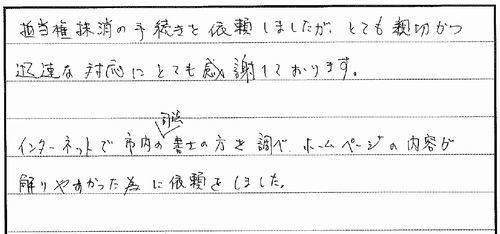 担当権抹消の手続きを依頼しましたが、とても親切かつ
迅速な対応にとても感謝しております。
インターネットで市内の司法書士の方を調べ、ホームページの内容が
解りやすかった為に依頼をしました。